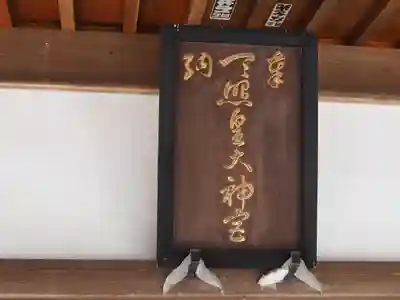 奉
天照皇大神宮
納